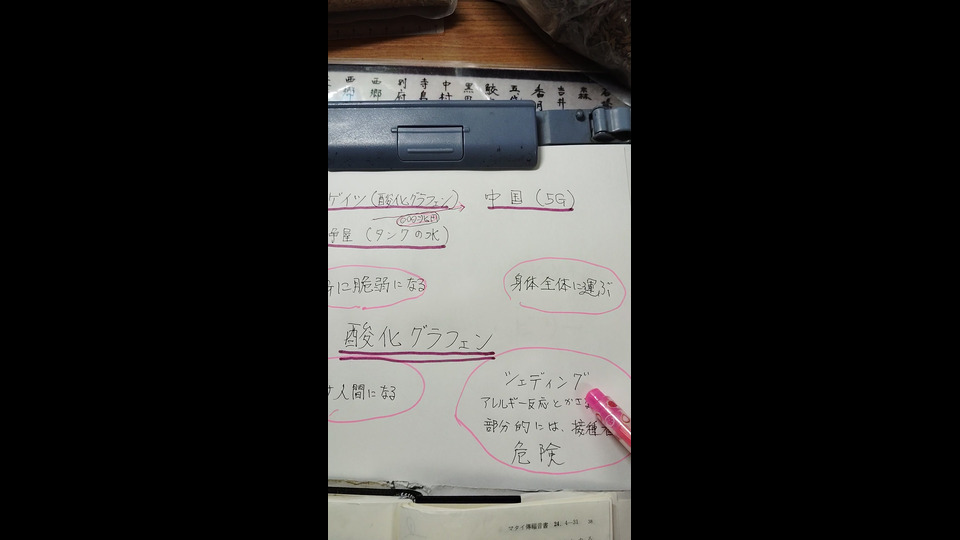 西郷
利府
寺島
中村
黒田
吉井
森
ゲイツ(酸化グラフェン) 中国(5G)
(タンクの水)
に脆弱になる 身体全体に運ぶ
酸化グラフェン
人間になる
シェディング
アレルギー反応とかさ
部分的には、接種
危険
マタイ傳福音書 24.4―31.